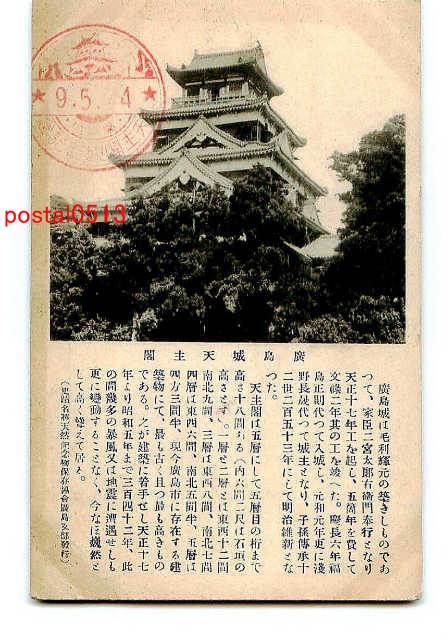 9.5.4
postal0513
廣島城天主閣
廣島城は毛利輝元の築きしものであ
つて、家臣二宮太郎右衞門奉行となり
天正十七年工を起し、五箇年を費して
文祿二年其の工を竣つた。慶長六年福
島正則代つて入城し、元和元年更に淺
野長晟代つて城主となり、子孫傳承十
二世二百五十三年として明治維新とな
つた。
天主閣は五層にして五層目の桁まで
高さ十八間ある（內六間二尺は石垣の
高さとす。一層と二層とは東西十二間
南北九間、三層は東西八間、南北七間
四層は東西六間、南北五間半、五層は
四方三間半、現今廣島市に存在する建
築物にて、最も古く且つ最も高きもの
である。之が建築に着手せし天正十七
年より昭和五年まで三百四十二年、此
の間幾多の暴風又は地震に遭遇せしも
更に變動することなく、今なほ巍然と
して高く聳えて居る。
（史蹟名勝天然記念物保存協會廣島支部發行）